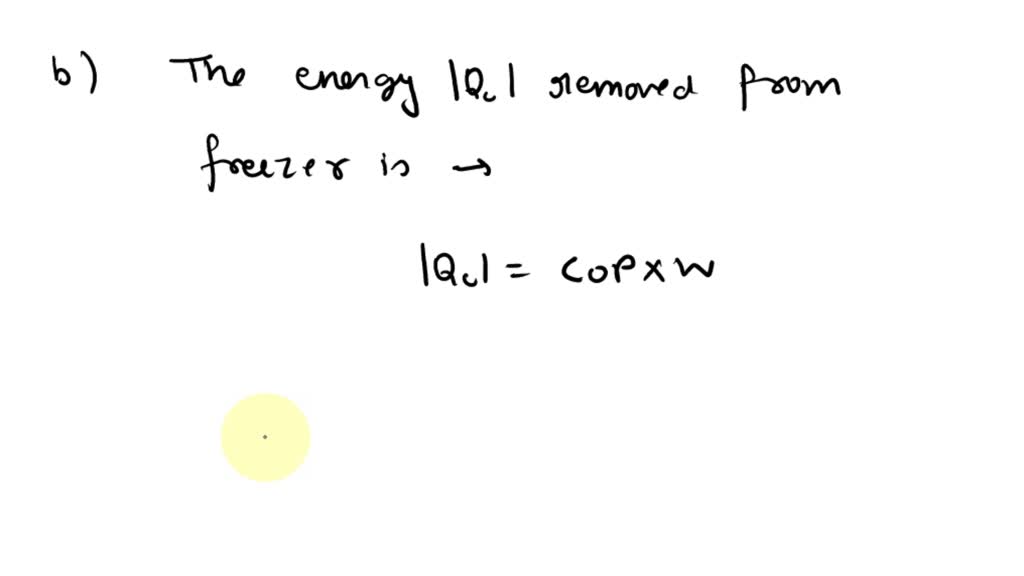 b) The energy |Qc| removed from
freezer is →
|Qc| = COP x W